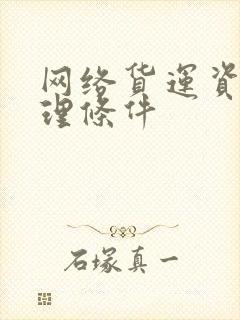 网络货運資
理條件
石塚真一